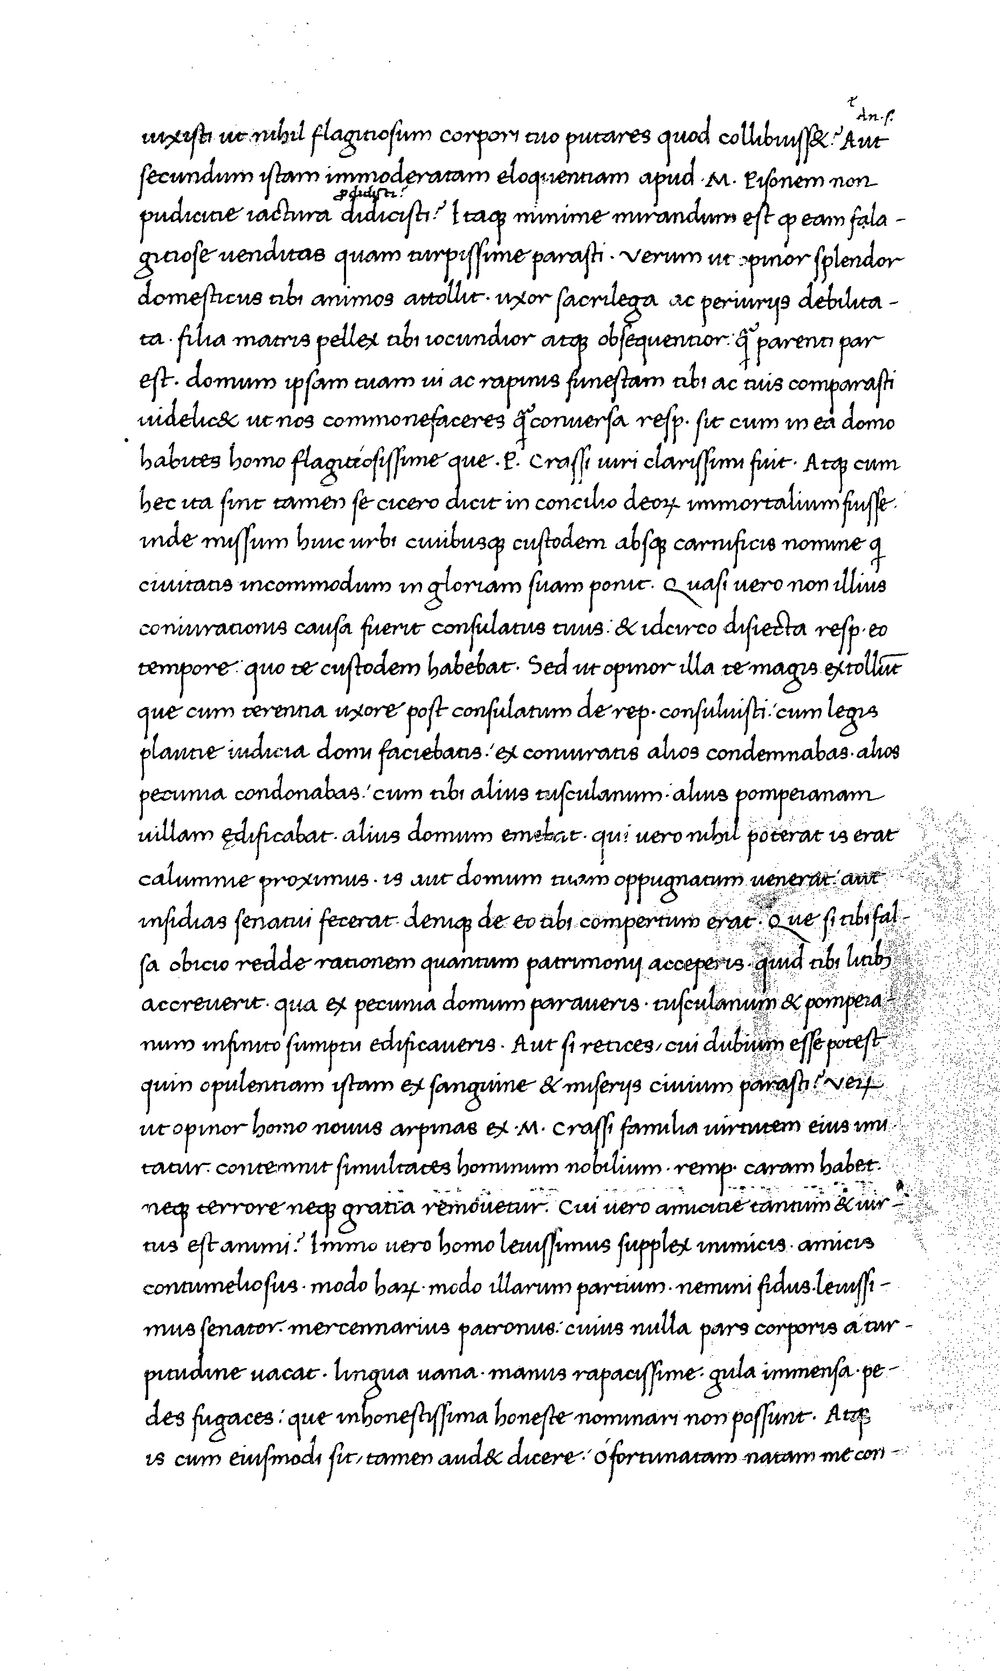 An. s.
uixisti ut nihil flagitiosum corpori tuo putares quod collibuiss&? Aut
secundum istam immoderatam eloquentiam apud · M · Pisonem non
ꝓdidisti?
pudicitie iactura didicisti? Itaqꝫ minime mirandum est ꝙ eam fala-
gitiose uenditas quam turpissime parasti · Verum ut opinor splendor
domesticus tibi animos attollit · uxor sacrilega ac periurijs debilita-
ta · filia matris pellex tibi iocundior atqꝫ obsequentior: q̃ parenti par
est · domum ipsam tuam ui ac rapinis funestam tibi ac tuis comparasti
uidelic& ut nos commonefaceres q̃ conuersa resp· sit cum in ea domo
habites homo flagitiosissime que · P · Crassi uiri clarissimi fuit · Atqꝫ cum
hec ita sint tamen se cicero dicit in concilio deoꝝ immortalium fuisse ·
inde missum huic urbi ciuibusqꝫ custodem absqꝫ carnificis nomine q
ciuitatis incommodum in gloriam suam ponit · Quasi uero non illius
coniurationis causa fuerit consulatus tuus: & idcirco disiecta resp· eo
tempore: quo te custodem habebat · Sed ut opinor illa te magis extollūt
que cum terentia uxore post consulatum de rep· consuluisti: cum legis
plautie iudicia domi faciebatis: ex coniuratis alios condemnabas · alios
pecunia condonabas: cum tibi alius tusculanum · alius pompeianam
uillam ędificabat · alius domum emebat · qui uero nihil poterat is erat
calumnie proximus · is aut domum tuam oppugnatum uenerat: aut
insidias senatui fecerat · deniqꝫ de eo tibi compertum erat · Que si tibi fal-
sa obicio redde rationem quantum patrimonij acceperis · quid tibi litibꝫ
accreuerit · qua ex pecunia domum paraueris · tusculanum & pompeia-
num infinito sumptu edificaueris · Aut si retices, cui dubium esse potest
quin opulentiam istam ex sanguine & miserijs ciuium parasti? Veꝝ
ut opinor homo nouus arpinas ex · M · Crassi familia uirtutem eius imi
tatur: contemnit simultates hominum nobilium · remp· caram habet ·
neqꝫ terrore neqꝫ gratia remouetur · Cui uero amicitie tantum & uir-
tus est animi? Immo uero homo leuissimus supplex inimicis · amicis
contumeliosus · modo haꝝ · modo illarum partium · nemini fidus · leuissi-
mus senator · mercennarius patronus: cuius nulla pars corporis a tur-
pitudine uacat · lingua uana · manus rapacissime · gula immensa · pe-
des fugaces: que inhonestissima honeste nominari non possunt · Atqꝫ
is cum eiusmodi sit, tamen aud& dicere: O fortunatam natam me con-